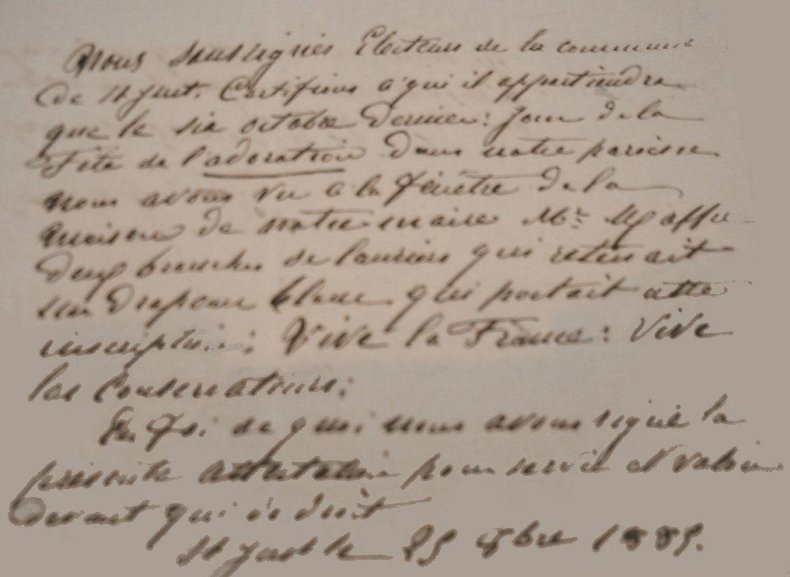 Nous soussignés Electeurs de la commune
de St Just. Certifions à qui il appartiendra
que le six octobre dernier: Jour de la
Fête de l'adoration Dans notre paroisse
nous avons vu à la fenêtre de la
maison de notre maire Mr Maffre
deux branches de lauriers qui retenait
un drapeau blanc qui portait cette
inscription: Vive la France: Vive
les Conservateurs:
En foi de quoi nous avons signé la
présente attestation pour servir et valoir
devant qui de droit
St Just le 25 9bre 1885.